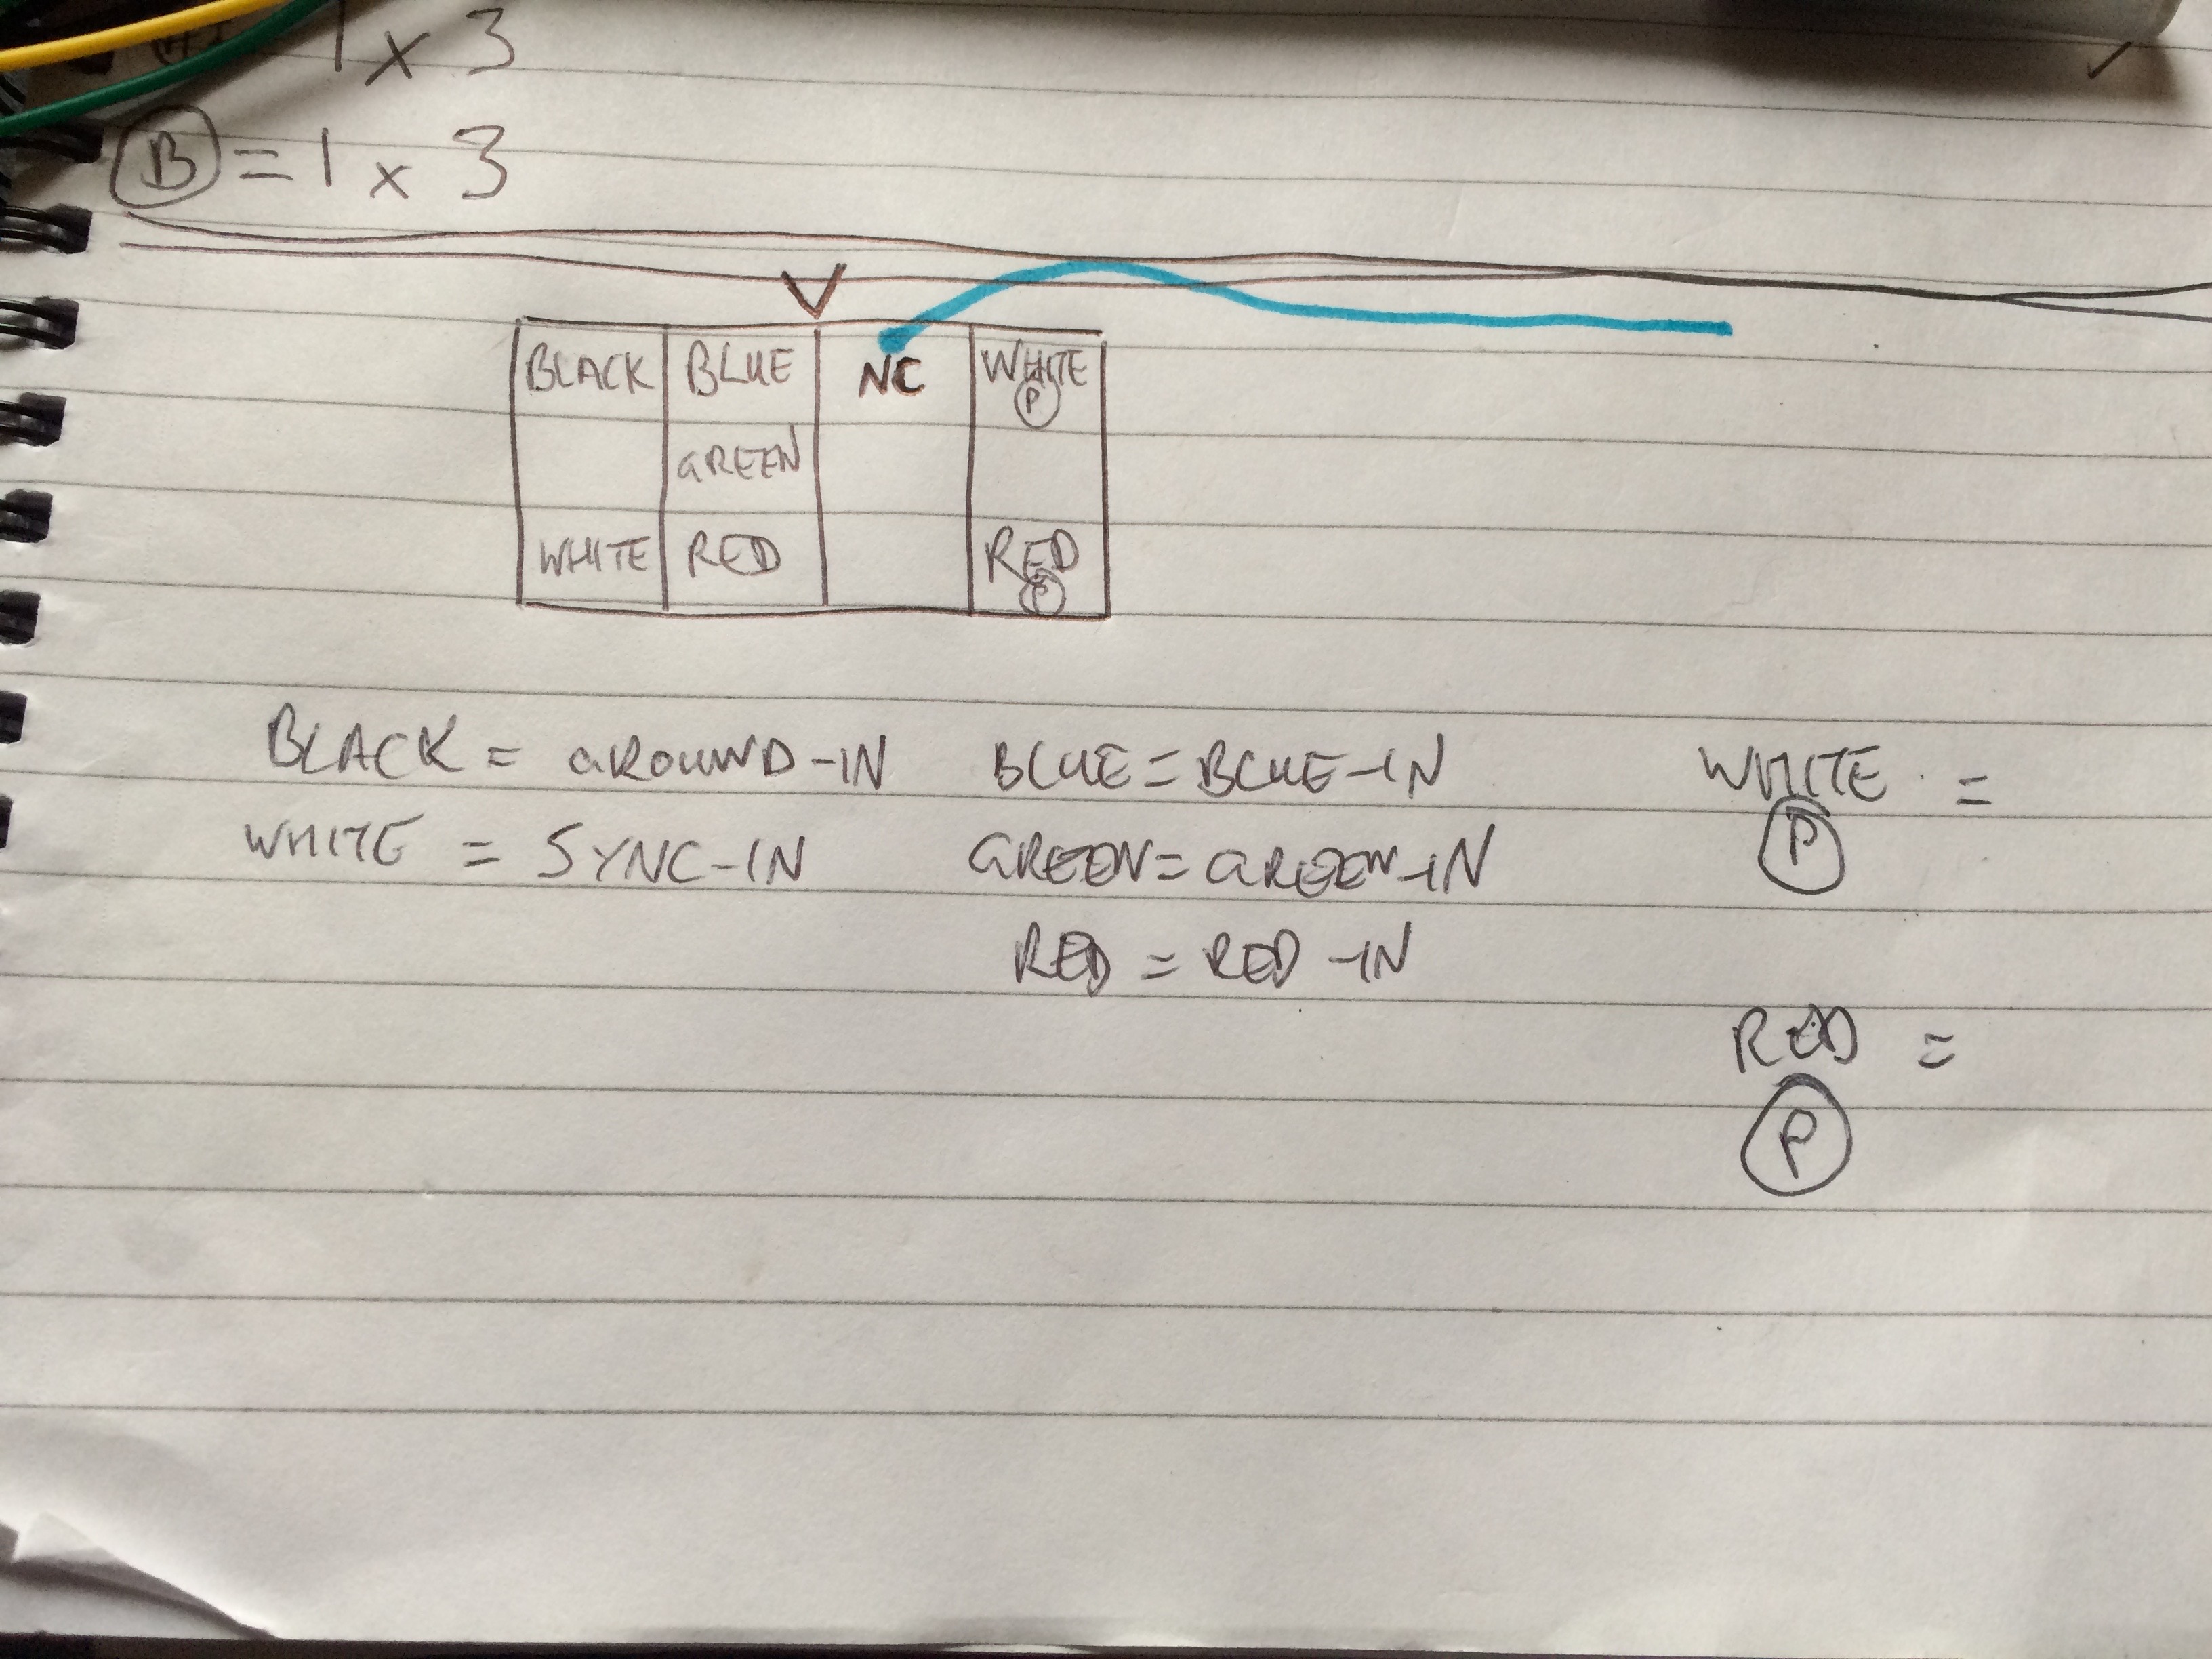 1 x 3
B = 1 x 3
V
BLACK BLUE NC WHITE
P
GREEN
WHITE RED RED
P
BLACK = GROUND-IN BLUE = BLUE-IN WHITE =
P
WHITE = SYNC-IN GREEN = GREEN-IN
RED = RED-IN
RED =
P